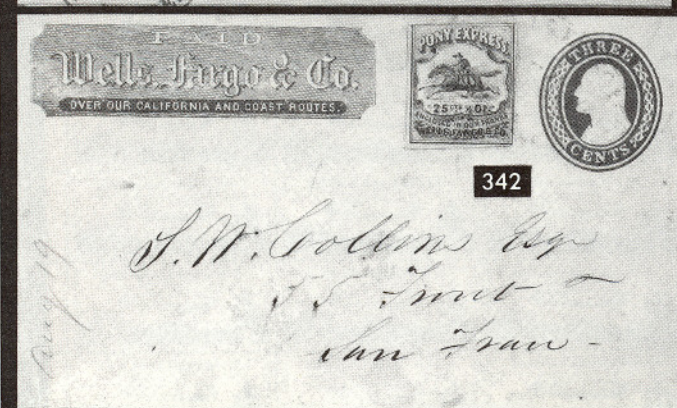 PAID
Wells, Fargo & Co.
OVER OUR CALIFORNIA AND COAST ROUTES.
PONY EXPRESS
25 CTS
ENCLOSED IN OUR FRANKS
WELLS, FARGO & CO.
THREE
CENTS
342
S. W. Collins Esqr
55 Front
San Fran -
Aug 19